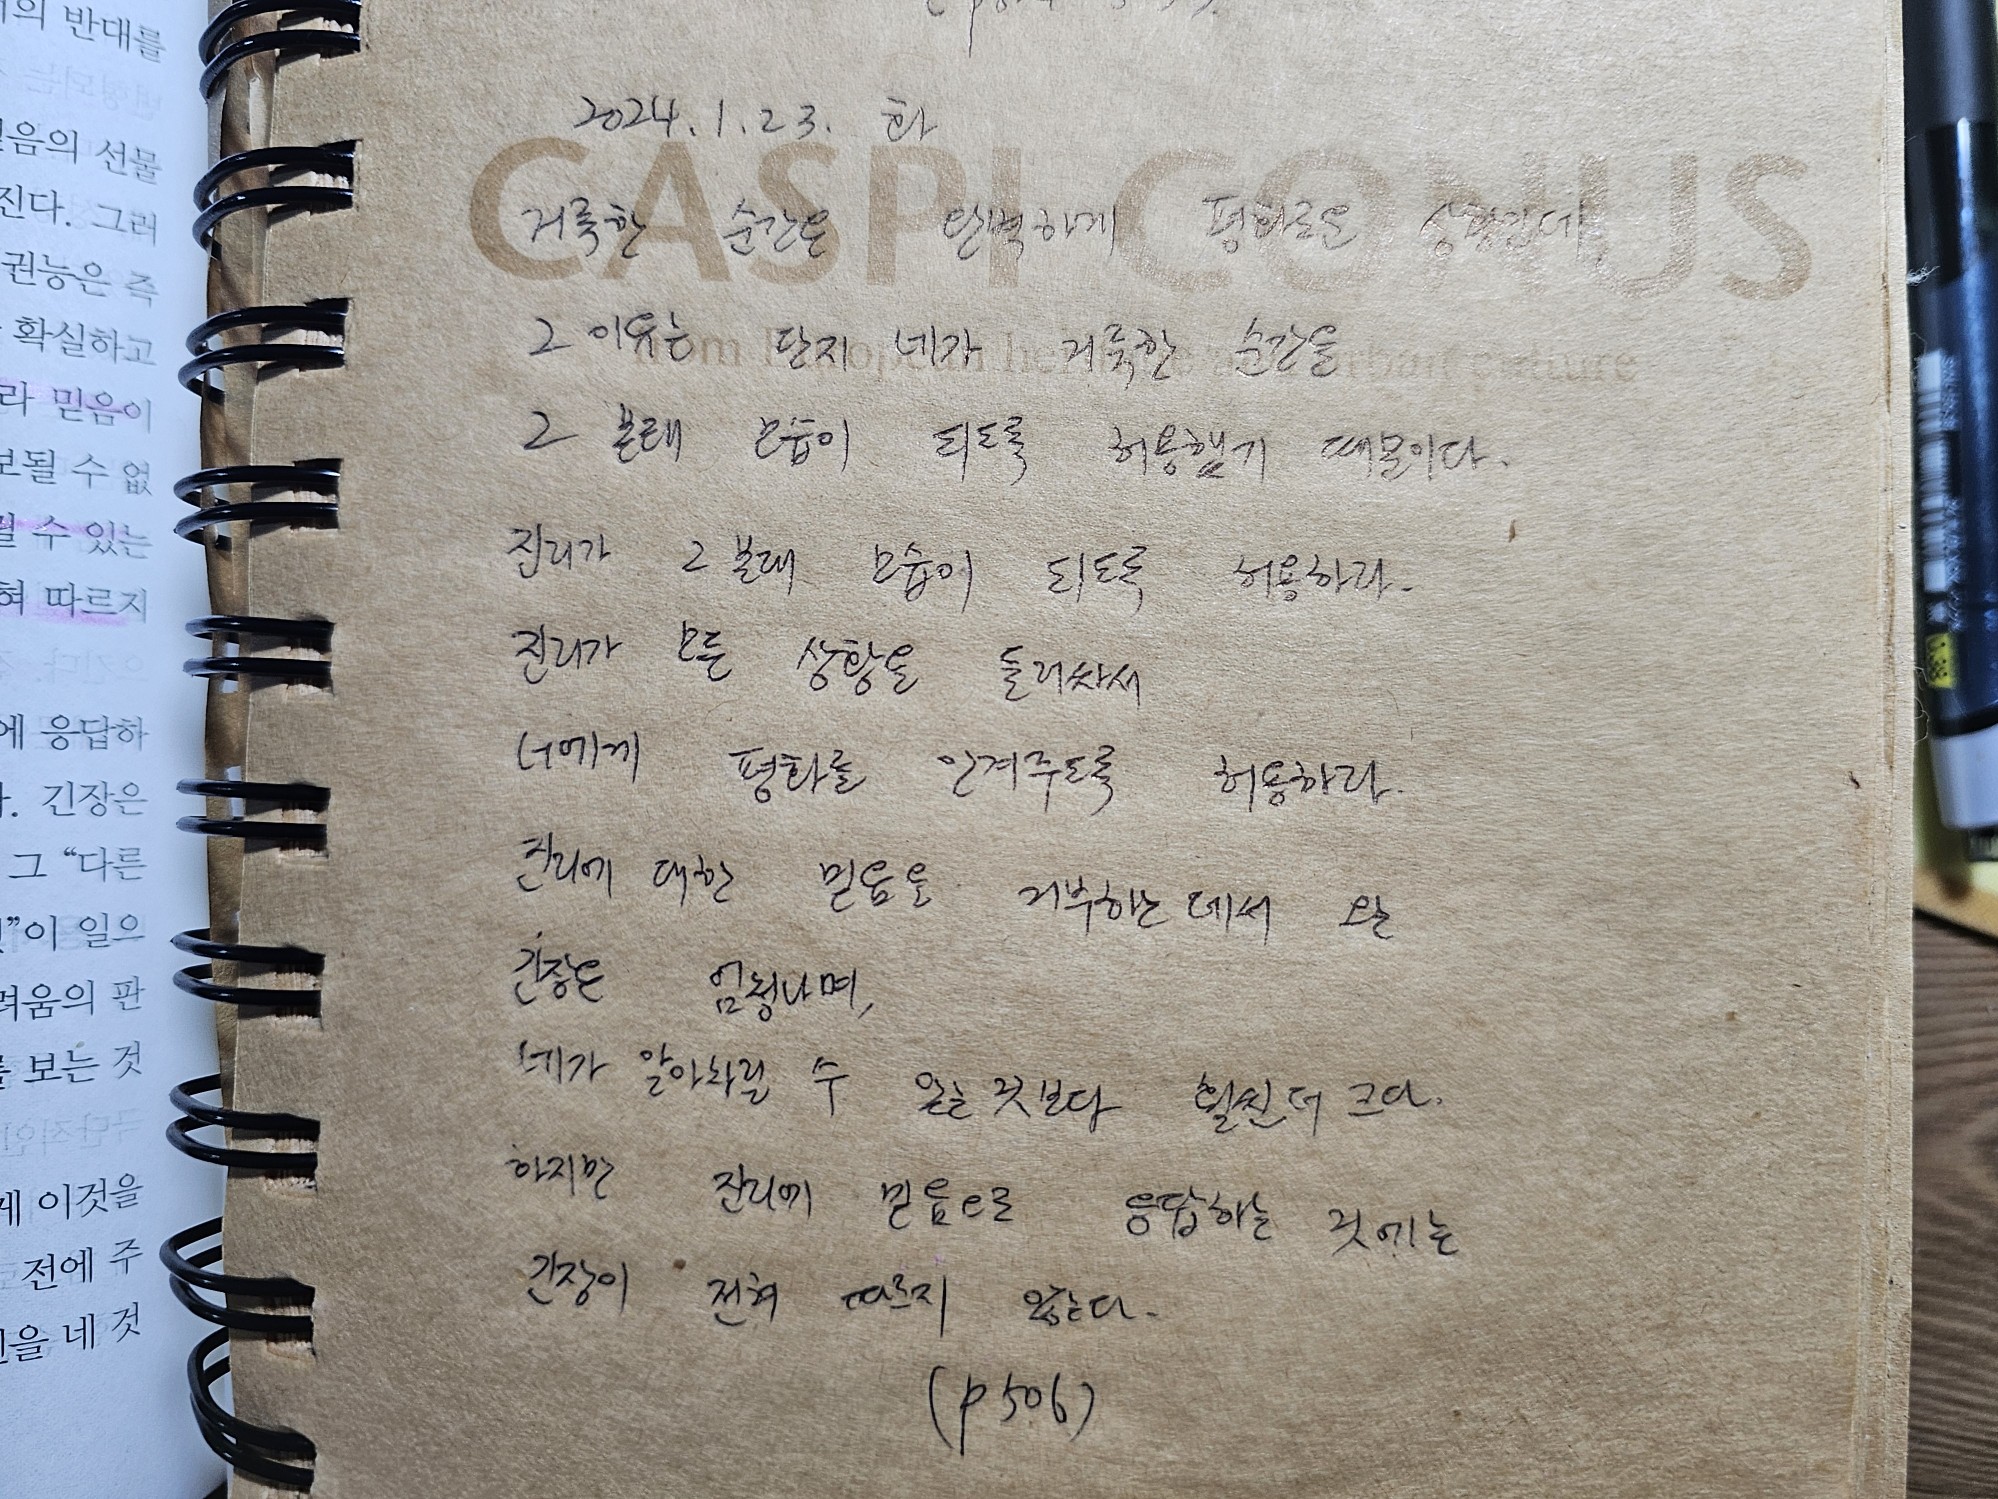 의 반대를
음의 선물
진다. 그러
권능은 즉
확실하고
라 믿음이
보될 수 없
수 있는
혀 따르지
에 응답하
긴장은
그 “다른
”이 일으
려움의 판
보는 것
게 이것을
전에 주
을 네 것
2024. 1. 23. 화
CASPI CONUS
거룩한 순간은 완벽하게 평화로운 상황인데,
그 이유는 단지 네가 거룩한 순간을
그 본래 모습이 되도록 허용했기 때문이다.
진리가 그 본래 모습이 되도록 허용하라.
진리가 모든 상황을 둘러싸서
너에게 평화를 안겨주도록 허용하라.
진리에 대한 믿음을 거부하는 데서 오는
긴장은 엄청나며,
네가 알아차릴 수 있는 것보다 훨씬 더 크다.
하지만 진리에 믿음으로 응답하는 것에는
긴장이 전혀 따르지 않는다.
(p 506)